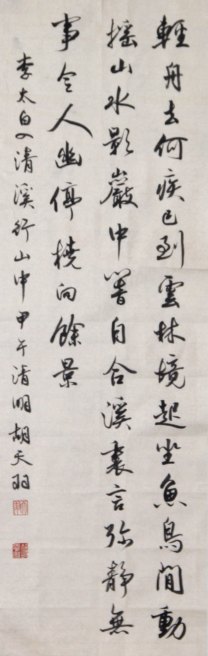 輕舟去何疾已到雲林境起坐魚鳥間動
搖山水影巖中響自合溪裏言弥靜無
事令人幽停橈向餘景
李太白入清溪行山中甲午清明胡天羽